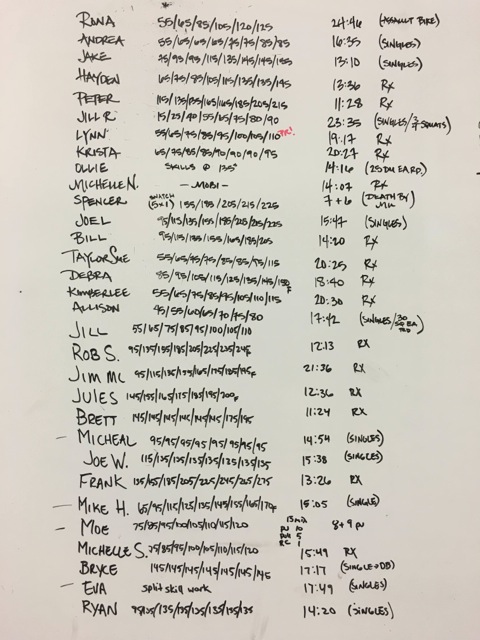 RONA 55/65/85/105/120/125 24:46 (ASSAULT BIKE)
ANDREA 55/65/65/65/75/75/85/85 16:35 (SINGLES)
JAKE 75/95/95/115/135/145/145/155 13:10 (SINGLES)
HAYDEN 65/75/85/105/115/135/135/145 13:36 Rx
PETER 115/135/155/165/165/185/205/215 11:28 Rx
JILL R 15/25/40/55/65/75/80/90 23:35 (SINGLES/3/4 SQUATS)
LYNN 55/65/75/85/95/100/105/110 PR! 19:17 Rx
KRISTA 65/75/85/85/90/90/90/95 20:27 Rx
OLLIE SKILLS @ 135# 14:16 (25DU EA RD.)
MICHELLE N. - MOBI - 14:07 Rx
SPENCER SNATCH (5x1) 155/185/205/215/225 7+6 (DEATH BY MU)
JOEL 95/115/135/155/185/205/205/225 15:47 (SINGLES)
BILL 95/115/135/155/165/185/205 14:20 Rx
TAYLOR SUE 55/65/75/75/85/85/95/115 20:25 Rx
DEBRA 85/95/105/115/125/135/145/150F 18:40 Rx
KIMBERLEE 55/65/75/85/95/105/110/115 20:30 Rx
ALLISON 45/55/60/65/70/75/80 17:42 (SINGLES/30 SQ EA RD)
JILL 55/65/75/85/95/100/105/110
ROB S. 95/135/155/185/205/225/235/245F 12:13 RX
JIM MC 95/115/135/155/165/175/185/195F 21:36 RX
JULES 145/155/165/175/185/195/200F 12:36 RX
BRETT 145/145/145/145/145/145/175/195 11:24 RX
- MICHEAL 95/95/95/95/95/95/95/95 14:54 (SINGLES)
JOE W. 115/125/135/135/135/135/135/135 15:38 (SINGLES)
FRANK 135/165/185/205/225/245/265/275 13:26 RX
- MIKE H. 65/95/115/125/135/145/155/165/170F 15:05 (SINGLE)
- MOE 75/85/95/100/105/110/115/120 15min PU 10 PUU 5 RC 1 8+9 PU
MICHELLE S. 75/85/95/100/105/110/115/120 15:49 RX
BRYCE 145/145/145/145/145/145/145 17:17 (SINGLE→DB)
- EVA split skill work 17:49 (SINGLES)
RYAN 95/135/135/135/135/135/135/135 14:20 (SINGLES)